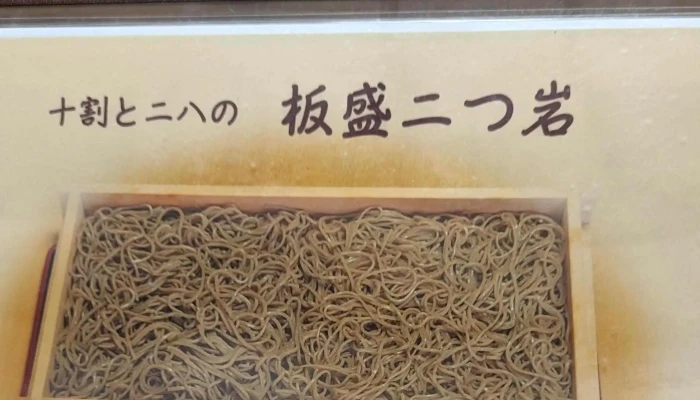 十割と二八の 板盛二つ岩